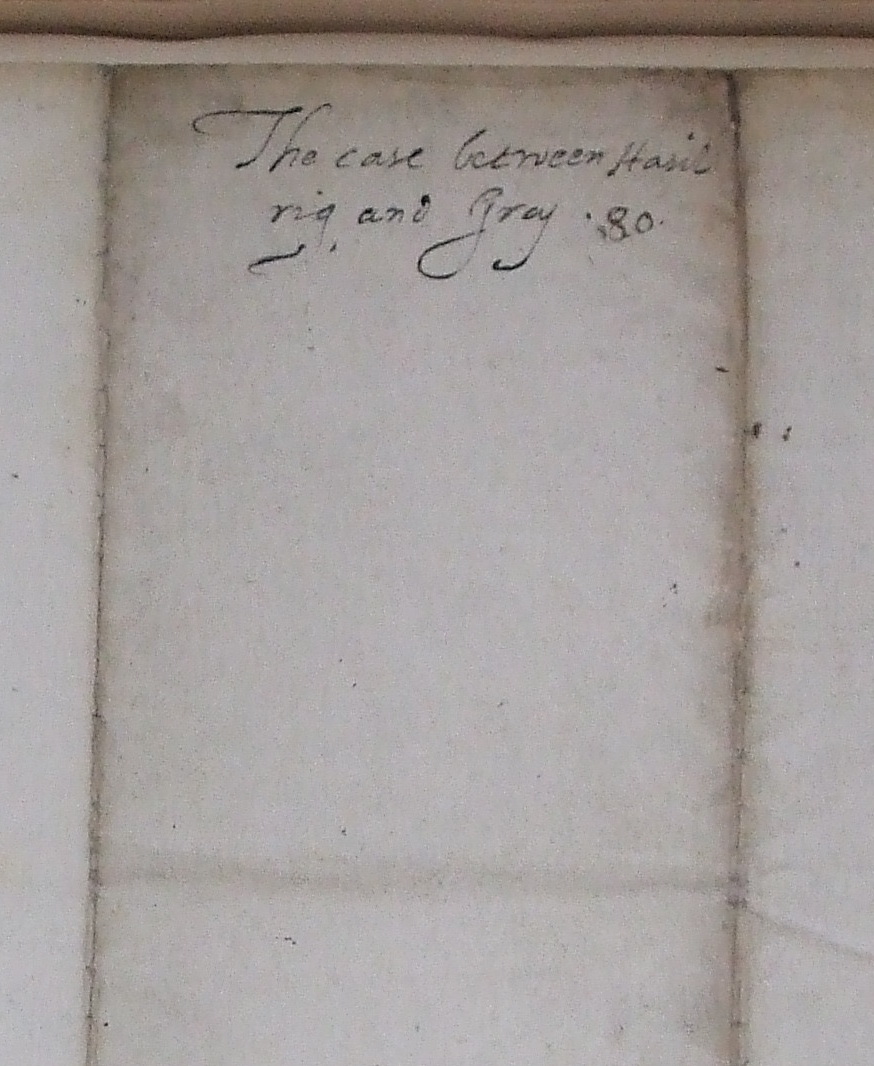 The case between Hasil
rig and Gray .80.